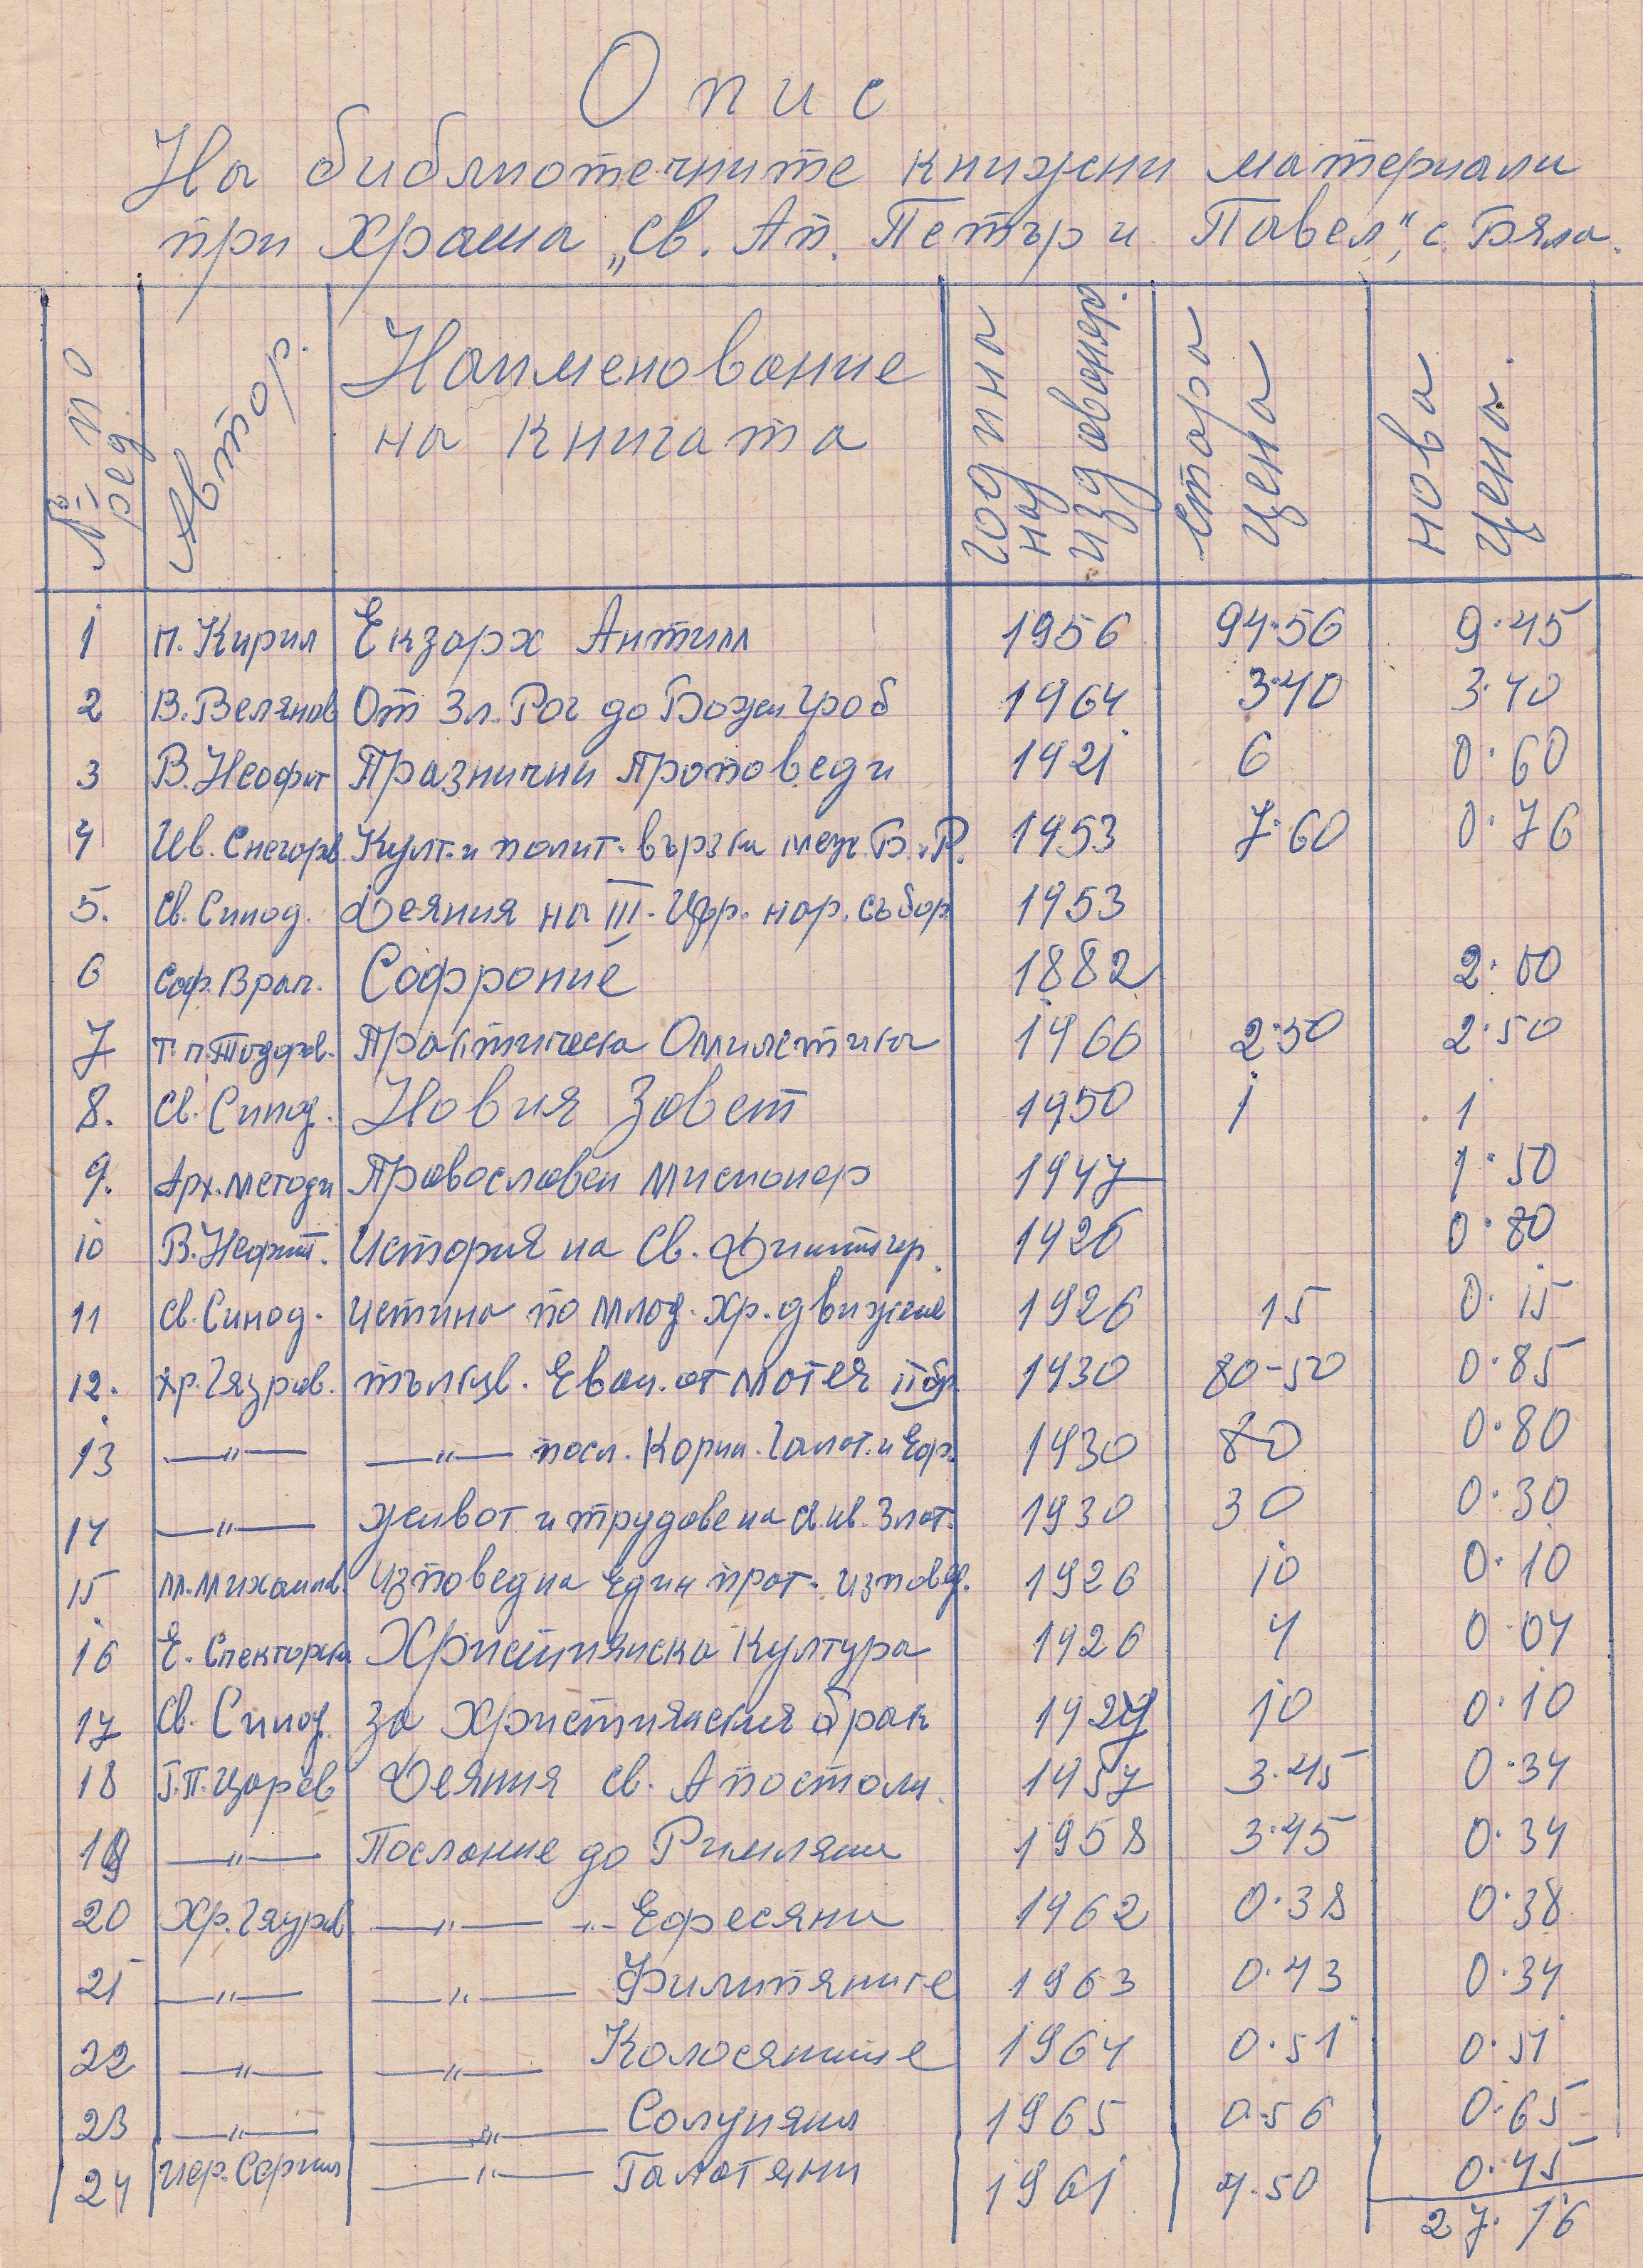 Опис
На библиотечните книжни материали
при Храма „Св. Ап. Петър и Павел“, с. Бяла.
№ по ред Автор. Наименование на книгата година на издаванер. стара цена нова цена.
1 п. Кирил Екзарх Антим 1956 94·56 9·45
2 В. Велянов От Зл. Рог до Божи гроб 1964 3·40 3·40
3 В. Неофит Празнични проповеди 1921 6 0·60
4 Ив. Снегоров Култ. и полит. връзки меж. Б. и Р. 1953 7·60 0·76
5. Св. Синод. Деяния на III. Цър. нар. събор 1953
6 Соф. Врач. Софроние 1882 2·00
7 т. п. Тодоров. Практическа Омилетика 1966 2·50 2·50
8. Св. Синод. Новия Завет 1950 1 1
9. Арх. Методи Православен Мисионер 1947 1·50
10 В. Неофит. История на Св. Димитър. 1926 0·80
11 Св. Синод. истина по млад. хр. движение 1926 15 0·15
12. Хр. Гяуров. тълкув. Еван. от Матея II бр. 1930 80-50 0·85
13 —„— —„— посл. Корин. Галат. и Еф. 1930 80 0·80
14 —„— живот и трудове на Св. Ив. Злат. 1930 30 0·30
15 М. Михаилов. Изповед на един прот. изповед. 1926 10 0·10
16 Е. Спекторски Християнска Култура 1926 4 0·04
17 Св. Синод. За Християнския брак 1927 10 0·10
18 Г. П. Царев Деяния св. Апостоли. 1957 3·45 0·34
19 —„— Послание до Римляни 1958 3·45 0·34
20 Хр. Гяуров. —„— -„- Ефесяни 1962 0·38 0·38
21 —„— —„— Филипяните 1963 0·43 0·34
22 —„— —„— Колосяните 1964 0·51 0·51
23 —„— —„— Солуняни 1965 0·56 0·65
24 Иер. Сергий —„— Галатяни 1961 4·50 0·45
27·16